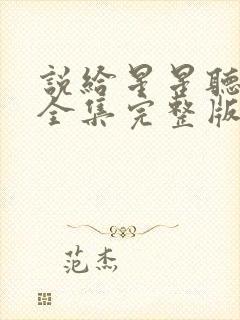 說給星星聽
全集完整版
范杰